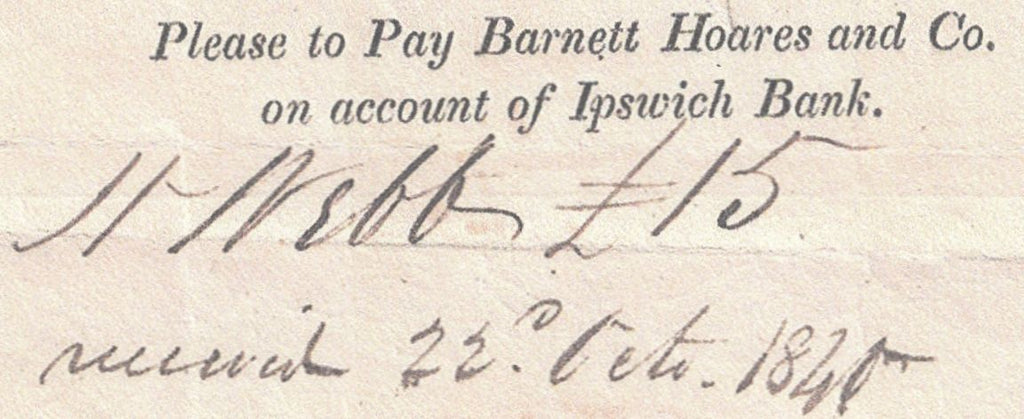 Please to Pay Barnett Hoares and Co.
on account of Ipswich Bank.
H Webb £15
received 22d Octo. 1840